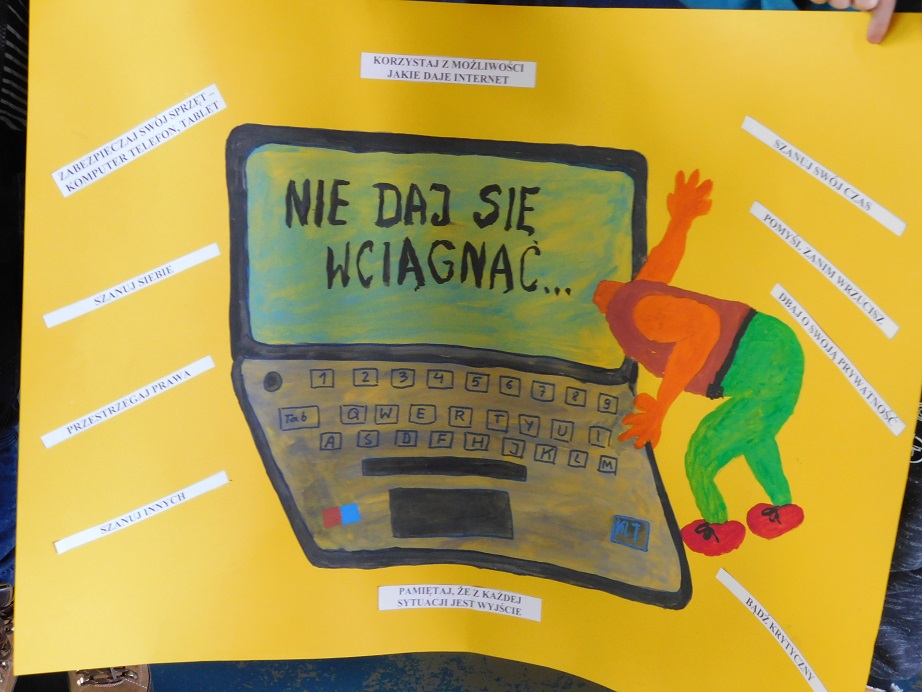 KORZYSTAJ Z MOŻLIWOŚCI
JAKIE DAJE INTERNET
ZABEZPIECZAJ SWÓJ SPRZĘT –
KOMPUTER TELEFON, TABLET
SZANUJ SIEBIE
PRZESTRZEGAJ PRAWA
SZANUJ INNYCH
NIE DAJ SIĘ
WCIĄGNĄĆ...
1 2 3 4 5 6 7 8 9
Tab Q W E R T Y U I
A S D F H J K L M
SZANUJ SWÓJ CZAS
POMYŚL ZANIM WRZUCISZ
DBAJ O SWOJĄ PRYWATNOŚĆ
PAMIĘTAJ, ŻE Z KAŻDEJ
SYTUACJI JEST WYJŚCIE
BĄDŹ KRYTYCZNY